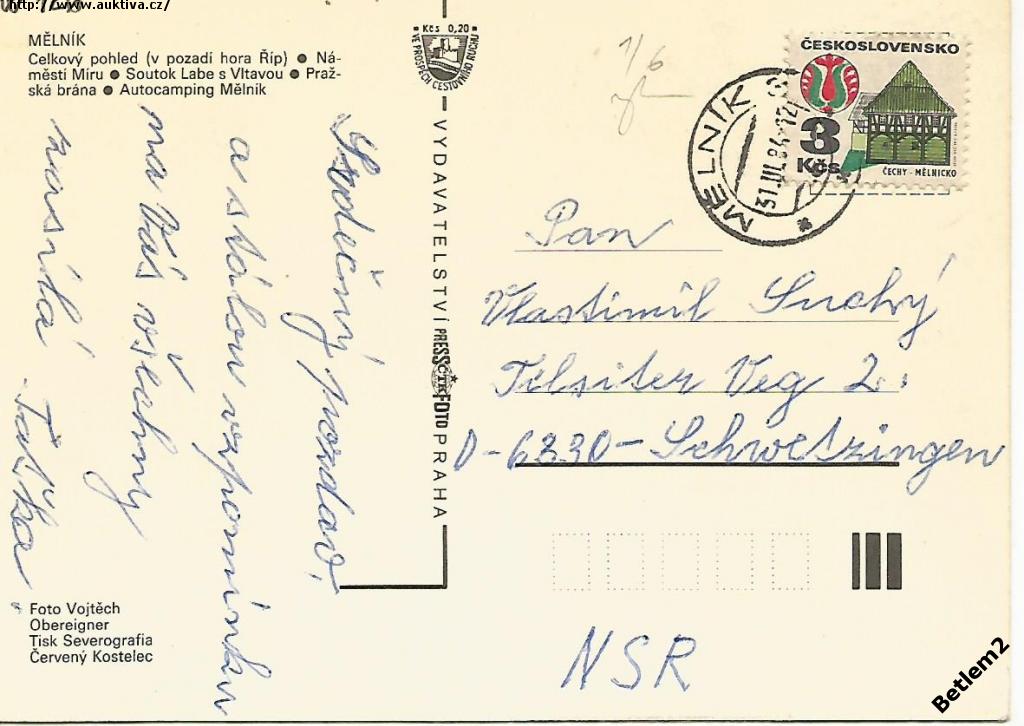 http://www.auktiva.cz/
MĚLNÍK
Celkový pohled (v pozadí hora Říp) ● Ná-
městí Míru ● Soutok Labe s Vltavou ● Praž-
ská brána ● Autocamping Mělník
Srdečný pozdrav,
a stálou vzpomínku
na Vás všechny
zasílá Taťka
Foto Vojtěch
Obereigner
Tisk Severografia
Červený Kostelec
Kčs 0,20
VE PROSPĚCH CESTOVNÍHO RUCHU
VYDAVATELSTVÍ PRESSFOTO PRAHA
ČTK
1/6
ČESKOSLOVENSKO
3
Kčs
ČECHY - MĚLNICKO
MĚLNÍK
31.III.84-12
Pan
Vlastimil Suchý
Tilsiter Veg 2.
D-6830-Schwetzingen
NSR
Betlem2